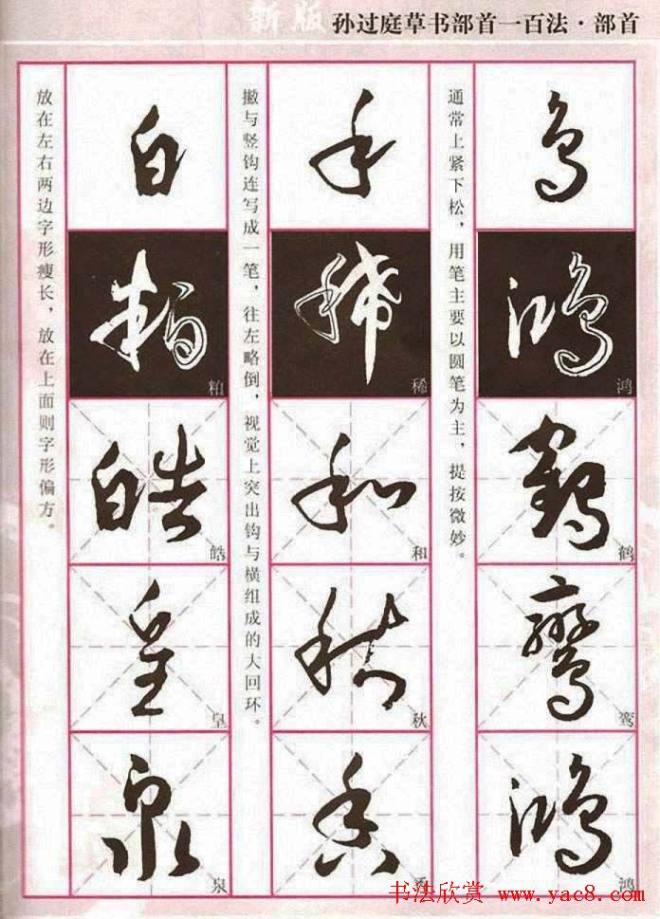 新版 孙过庭草书部首一百法·部首
鸟
鸿
鸿
鹤
鹤
鸾
鸾
鸿
鸿
通常上紧下松，用笔主要以圆笔为主，提按微妙。
禾
稀
稀
和
和
秋
秋
香
撇与竖钩连写成一笔，往左略倒，视觉上突出钩与横组成的大回环。
白
粕
粕
皓
皓
皇
皇
泉
泉
放在左右两边字形瘦长，放在上面则字形偏方。
书法欣赏 www.yac8.com